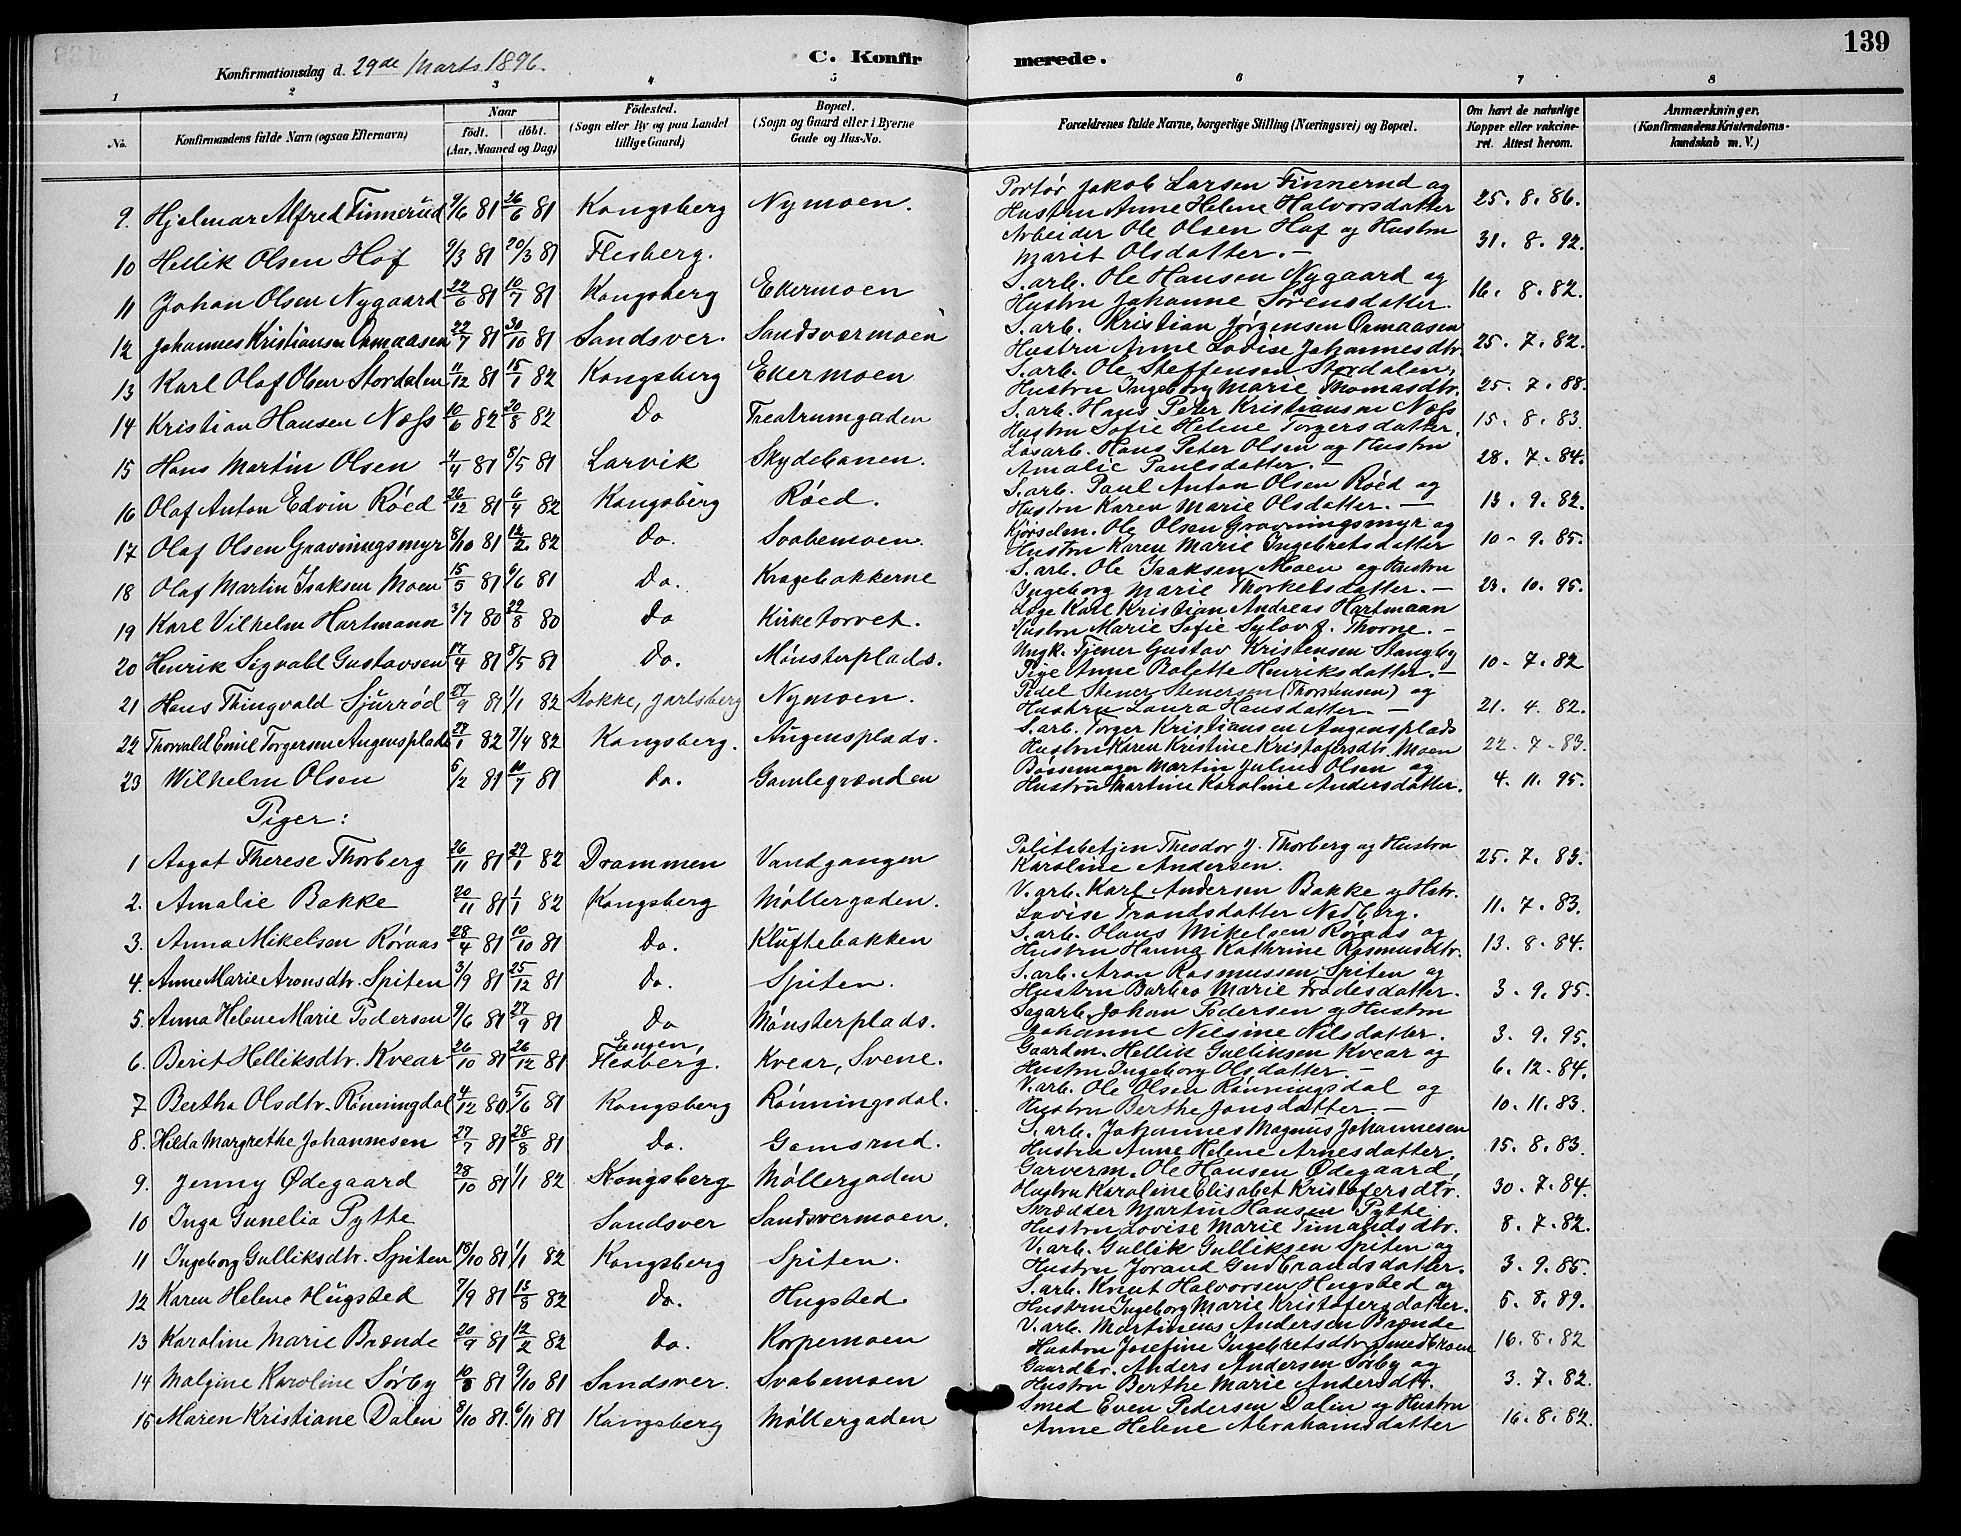 139
Konfirmationsdag d. 29de Marts 1896.
C. Konfirmerede.
1 2 3 4 5 6 7 8
No. Konfirmandens fulde Navn (ogsaa Efternavn) Naar født. døbt. (Aar, Maaned og Dag) Födested. (Sogn eller By og paa Landet tillige Gaard) Bopæl. (Sogn og Gaard eller i Byerne Gade og Hus-No. Forældrenes fulde Navne, borgerlige Stilling (Næringsvei) og Bopæl. Om havt de naturlige Kopper eller vakcineret. Attest herom. Anmærkninger. (Konfirmandens Kristendomskundskab m. V.)
9. Hjelmar Alfred Finnerud 9/6 81 26/6 81 Kongsberg Nymoen. Portør Jakob Larsen Finnerud og Hustru Anne Helene Halvorsdatter 25. 8. 86.
10 Hellik Olsen Hof 9/3 81 20/3 81 Flesberg. Arbeider Ole Olsen Hof og Hustru Marit Olsdatter. - 31. 8. 92.
11 Johan Olsen Nygaard 22/6 81 10/7 81 Kongsberg Ekermoen S. arb. Ole Hansen Nygaard og Hustru Johanne Sørensdatter. 16. 8. 82.
12 Johannes Kristiansen Onmaasen 22/7 81 30/10 81 Sandsver. Sandsvermoen S. arb. Kristian Jørgensen Onmaasen Hustru Anne Lovise Johannesdtr. 25. 7. 82.
13 Karl Olaf Olsen Stordalen 11/12 81 15/1 82 Kongsberg Ekermoen S. arb. Ole Steffensen Stordalen, Hustru Ingeborg Marie Thomasdtr. 25. 7. 88.
14 Kristian Hansen Næss 10/6 82 20/8 82 Do Theatrumgaden S. arb. Hans Peter Kristiansen Næss Hustru Sofie Helene Torgersdatter. 15. 8. 83.
15 Hans Martin Olsen 4/4 81 8/5 81 Larvik Skydebanen. Løsarb. Hans Peter Olsen og Hustru Amalie Paulsdatter. - 28. 7. 84.
16 Olaf Anton Edvin Röed 26/12 81 6/4 82 Kongsberg Röed. S. arb. Paul Anton Olsen Röed og Hustru Karen Marie Olsdatter. - 13. 9. 82.
17 Olaf Olsen Gravningsmyr 8/10 81 12/2 82 Do. Svabemoen. Kjørselm. Ole Olsen Gravningsmyr og Hustru Karen Marie Ingebretsdatter 10 - 9. 85.
18 Olaf Martin Isaksen Moen 15/5 81 6/6 81 Do. Kragebakkerne S. arb. Ole Isaksen Moen og Hustru Ingeborg Marie Thorkelsdatter. - 23. 10. 95.
19 Karl Vilhelm Hartmann 3/7 80 29/8 80 Do Kirketorvet. Læge Karl Kristian Andreas Hartmann Hustru Marie Sofie Sylov f. Thorne. -
20 Henrik Sigvald Gustavsen 17/4 81 8/5 81 Do. Mønsterplads. Ungk. Tjener Gustav Kristensen Stangeby Pige Anne Bolette Henriksdatter. - 10 - 7. 82
21 Hans Thingvald Sjurröd 27/9 81 1/1 82 Stokke, Jarlsberg Nymoen. Pedel Stener Stenersen (Thorstensen) og Hustru Laura Hansdatter. - 21. 4. 82.
22 Thorvald Emil Torgersen Augensplads 29/1 82 7/4 82 Kongsberg. Augensplads. S. arb. Torger Kristiansen Augensplads Hustru Karen Kristine Kristofersdtr. Moen 22 - 7 - 83.
23 Wilhelm Olsen 5/2 81 10/7 81 Do. Gamlegrænden Bøssemager Martin Julius Olsen og Hustru Martine Karoline Andersdatter. 4. 11. 95.
Piger:
1 Aagot Therese Thorberg 26/11 81 29/1 82 Drammen Vandgangen Politibetjen Theodor J. Thorberg og Hustru Karoline Andersen. 25. 7. 83.
2. Amalie Bakke 20/11 81 1/1 82 Kongsberg Møllergaden. V. arb. Karl Andersen Bakke og Hstr. Lovise Trondsdatter Nedberg. 11. 7. 83.
3. Anna Mikelsen Röraas 28/4 81 10/10 81 Do. Kluftebakken S. arb. Olaus Mikelsen Röraas og Hustru Hanna Kathrine Rasmusdtr. 13. 8. 84.
4. Anne Marie Aronsdtr. Spiten 3/9 81 25/12 81 Do. Spiten. S. arb. Aron Rasmussen Spiten og Hustru Barbro Marie Frodesdatter. 3. 9. 85.
5. Anna Helene Marie Pedersen 9/6 81 27/9 81 Do Mønsterplads. Sagarb. Johan Pedersen og Hustru Johanne Nilsine Nilsdatter. 3. 9. 95.
6. Berit Helliksdtr. Kvear 26/10 81 26/12 81 Engen, Flesberg. Kvear, Svene. Gaardm. Hellik Gulliksen Kvear og Hustru Ingeborg Olsdatter. - 6. 12. 84.
7 Bertha Olsdtr. Rönningdal 4/12 80 5/6 81 Kongsberg Rönningsdal. V. arb. Ole Olsen Rönningsdal og Hustru Berthe Jonsdatter. - 10. 11. 83.
8. Hilda Margrethe Johannesen 27/7 81 28/8 81 Do. Gomsrud. S. arb. Johannes Magnus Johannesen Hustru Anne Helene Arnesdatter. 15. 8. 83.
9. Jenny Ødegaard 28/10 81 1/1 82 Kongsberg Møllergaden Garverm. Ole Hansen Ødegaard, Hustru Karoline Elisabet Kristofersdtr. 30. 7. 84.
10 Inga Gunelia Pytte Sandsver Sandsvermoen. Skrædder Martin Hansen Pytte Hustru Lovise Marie Simandsdtr. 8. 7. 82.
11 Ingeborg Gulliksdtr. Spiten 18/10 81 1/1 82 Kongsberg Spiten. V. arb. Gullik Gulliksen Spiten og Hustru Jorand Gudbrandsdatter. 3. 9. 85.
12 Karen Helene Hugsted 7/9 81 13/8 82 Do. Hugsted. S. arb. Knut Halvorsen Hugsted og Hustru Ingeborg Marie Kristofersdatter. 5. 8. 89.
13 Karoline Marie Brænde 20/9 81 12/2 82 Do. Korpemoen V. arb. Martinius Andersen Brænde Hustru Josefine Ingebretsdtr. Smedbroen 16. 8. 82
14 Malzine Karoline Sørby 10/8 81 9/10 81 Sandsver. Svabemoen Gaardbr. Anders Andersen Sørby og Hustru Berthe Marie Andersdtr. 3. 7. 82.
15 Maren Kristiane Dalen 8/10 81. 6/11 81 Kongsberg Møllergaden Smed Even Pedersen Dalin og Hustru Anne Helene Abrahamsdatter 16. 8. 82.